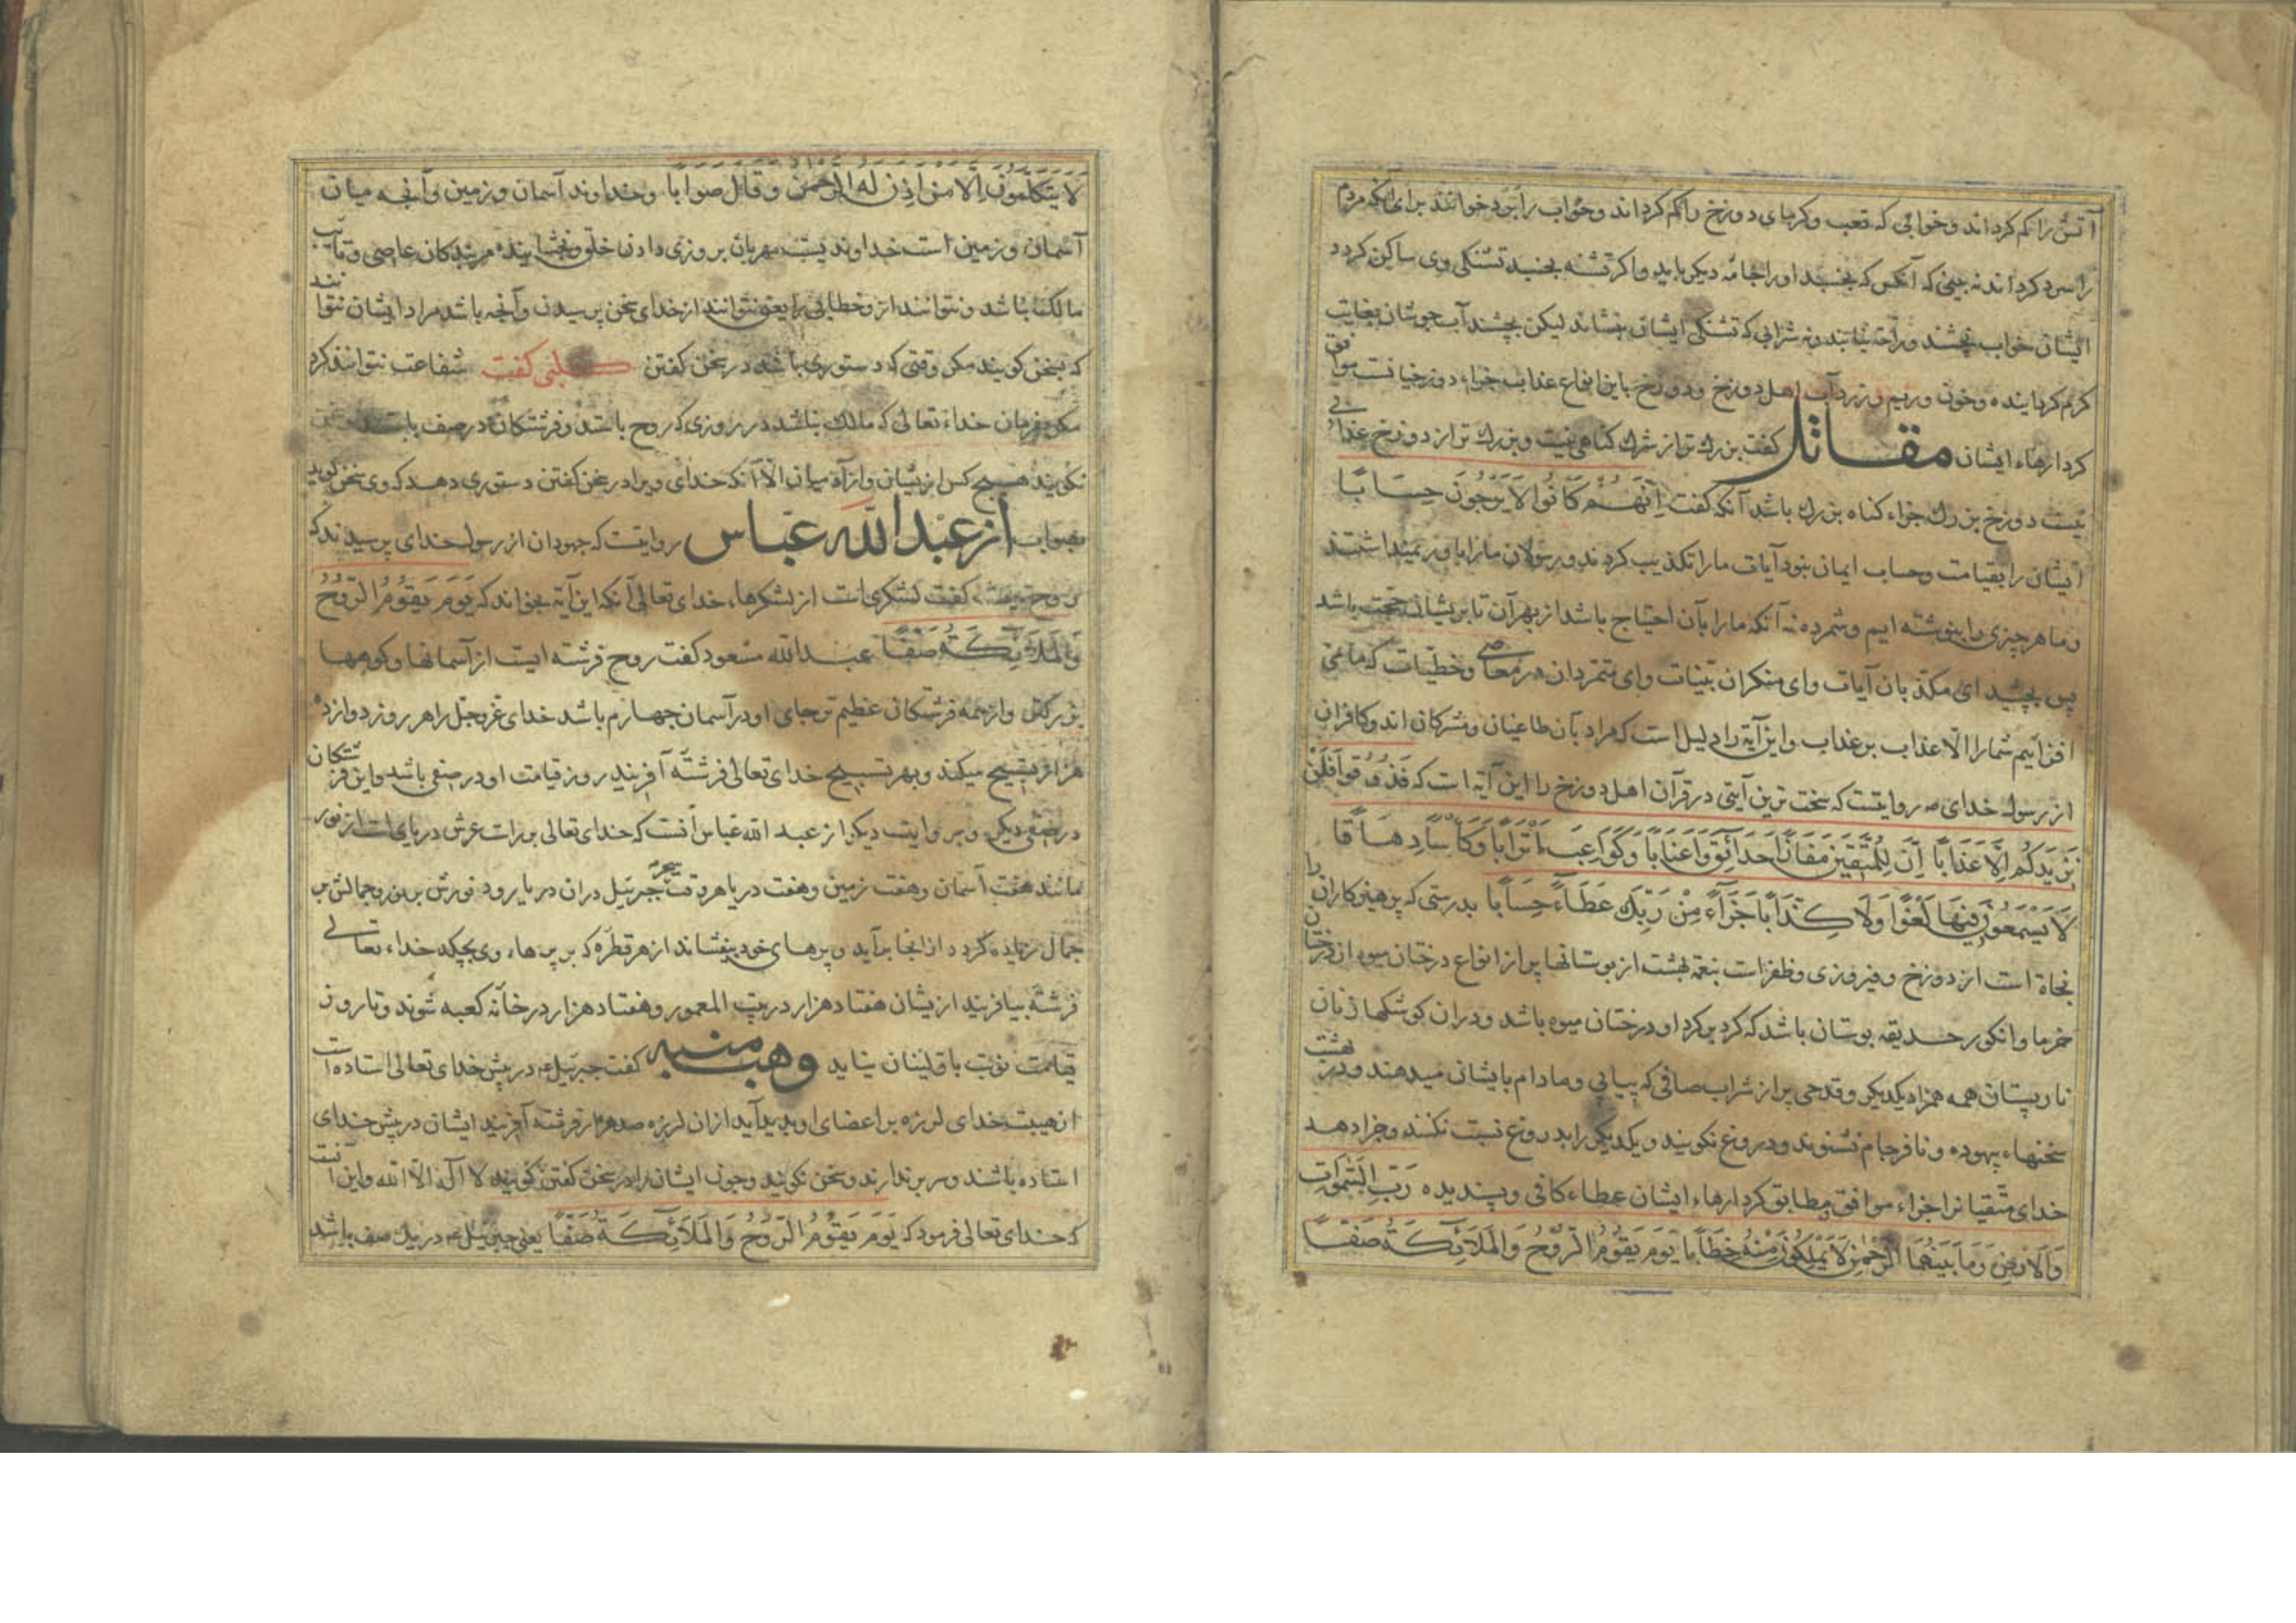 آتش را کم کرداند و خوابی که تعب و کرمای دوزخ را کم کرداند و خواب را برد خوانند برای آنکه مردم
را سرد کرداند نه بینی که آنکس که بخسبد او را جامهٔ دیکر باید و اکر تشنه بخسبد تشنکی وی ساکن کردد
ایشان خواب نچشند و راحة نیابند و نه شرابی که تشنکی ایشان بنشاند لیکن بچشند آب جوشان بغایت
کرم کردانیده و خون و ریم و زردآب اهل دوزخ و دوزخ باین انواع عذاب جزاء دوزخیانست موافق
کردارهاء ایشان مقاتل کفت بزرك تر از شرك کناهی نیست و بزرك تر از دوزخ عذابی
نیست دوزخ بزرك جزاء کناه بزرك باشد آنکه کفت اِنَّهُمْ کَانُوا لَا یَرْجُونَ حِسَابًا
ایشان را بقیامت و حساب ایمان نبود آیات ما را تکذیب کردند و رسولان ما را باور نمیداشتند
و ما هر چیزی را بنوشته ایم و شمرده نه آنکه ما را بآن احتیاج باشد از بهر آن تا بریشان حجت باشد
پس بچشید ای مکذبان آیات و ای منکران بینات و ای متمردان در معاصی و خطیّات که ما نمی
افزاییم شما را الّا عذاب بر عذاب و این آیة را دلیل است که مراد بآن طاغیان و مشرکان اند و کافران
از رسول خدای ص روایتست که سخت ترین آیتی در قرآن اهل دوزخ را این آیة است که فَذُوقُوا فَلَنْ
نَزِیدَکُمْ اِلَّا عَذَابًا اِنَّ لِلْمُتَّقِینَ مَفَازًا حَدَائِقَ وَاَعْنَابًا وَکَوَاعِبَ اَتْرَابًا وَکَأْسًا دِهَاقًا
لَا یَسْمَعُونَ فِیهَا لَغْوًا وَلَا کِذَّابًا جَزَآءً مِنْ رَبِّكَ عَطَآءً حِسَابًا بدرستی که پرهیزکاران را
نجاة است از دوزخ و فیروزی و ظفرست بنعمة بهشت از بوستانها پر از انواع درختان میوه از درختان
خرما و انکور حدیقه بوستان باشد که کرد برکرد او درختان میوه باشد و در آن کوشکها زنان
نارپستان همه همزاد یکدیکر و قدحی پر از شراب صافی که پیاپی و مادام بایشان میدهند و در بهشت
سخنهاء بیهوده و نافرجام نشنوند و دروغ نکویند و یکدیکر را بدروغ نسبت نکنند و جزا دهد
خدای متّقیان را جزاء موافق مطابق کردارهاء ایشان عطاء کافی و پسندیده رَبِّ السَّمٰوَاتِ
وَالْاَرْضِ وَمَا بَیْنَهُمَا الرَّحْمٰنِ لَا یَمْلِکُونَ مِنْهُ خِطَابًا یَوْمَ یَقُومُ الرُّوحُ وَالْمَلَائِکَةُ صَفًّا
لَا یَتَکَلَّمُونَ اِلَّا مَنْ اَذِنَ لَهُ الرَّحْمٰنُ وَقَالَ صَوَابًا و خداوند آسمان و زمین و آنجه میان
آسمان و زمین است خداوندیست مهربان بروزی دادن خلق و بخشاینده مر بندکان عاصی و تایب
مالك باشد و نتوانند از و خطابی را یعنی نتوانند از خدای سخن پرسیدن و آنجه باشد مراد ایشان نتوانند
که سخن کویند مکر وقتی که دستوری باشد در سخن کفتن کلبی کفت شفاعت نتوانند کرد
مکر بفرمان خداء تعالی که مالك باشد در روزی که روح باشد و فرشتکان در صف باشند
نکویند هیچ کس ازیشان و از آدمیان الّا آنکه خدای ویرا در سخن کفتن دستوری دهد که وی سخن کوید
بصواب از عبد الله عباس روایتست که جهودان از رسول خدای پرسیدند که
روح چیست کفت لشکری است از لشکرهاء خدای تعالی آنکه این آیة بخواند که یَوْمَ یَقُومُ الرُّوحُ
وَالْمَلَائِکَةُ صَفًّا عبد الله مسعود کفت روح فرشته ایست از آسمانها و کوهها
بزرکتر و از همه فرشتکان عظیم تر جای او در آسمان جهارم باشد خدای عزوجل را هر روز دوازده
هزار تسبیح میکند و بهر تسبیح خدای تعالی فرشته آفریند روز قیامت او در صفی باشد و این فرشتکان
در صفی دیکر و بروایت دیکر از عبد الله عباس آنست که خدای تعالی بر راست عرش دریای است از نور
مانند هفت آسمان و هفت زمین و هفت دریا هر وقت سحر جبرئیل در آن دریا رود نورش بر نور و جمالش بر
جمال زیاده کردد از انجا برآید و پرهای خود بیفشاند از هر قطره که بر پرهاء وی بچکد خداء تعالی
فرشته بیافریند ازیشان هفتاد هزار در بیت المعمور و هفتاد هزار در خانه کعبه شوند و تا روز
قیامت نوبت باوّلینان نیاید وهب منبه کفت جبرئیل ع در پیش خدای تعالی استاده است
از هیبت خدای لرزه بر اعضای او پدید آید از ان لرزه صد هزار فرشته آفریند ایشان در پیش خدای
استاده باشند و سر برندارند و سخن نکویند و جون ایشان را در سخن کفتن کویند لا اله الا الله و این آنست
که خدای تعالی فرمود که یَوْمَ یَقُومُ الرُّوحُ وَالْمَلَائِکَةُ صَفًّا یعنی جبرئیل ع در یك صف باشد